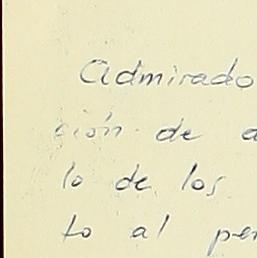 Admirado
ción de a
lo de los
to al per